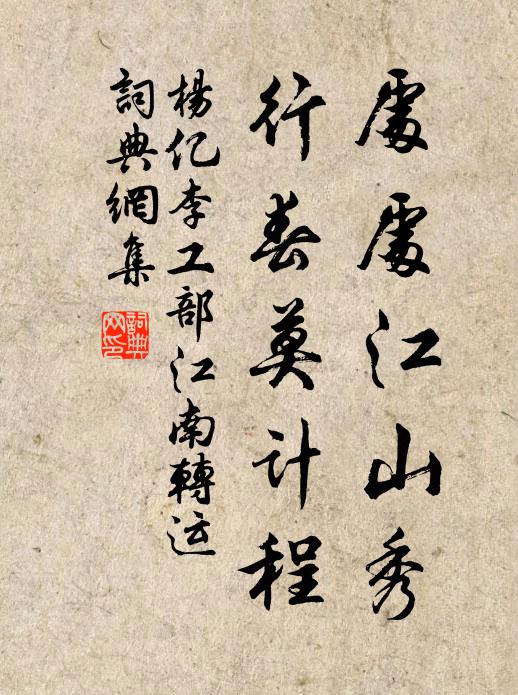 處處江山秀
行春莫計程
楊亿李工部江南轉运
詞典網集
詞典
网印